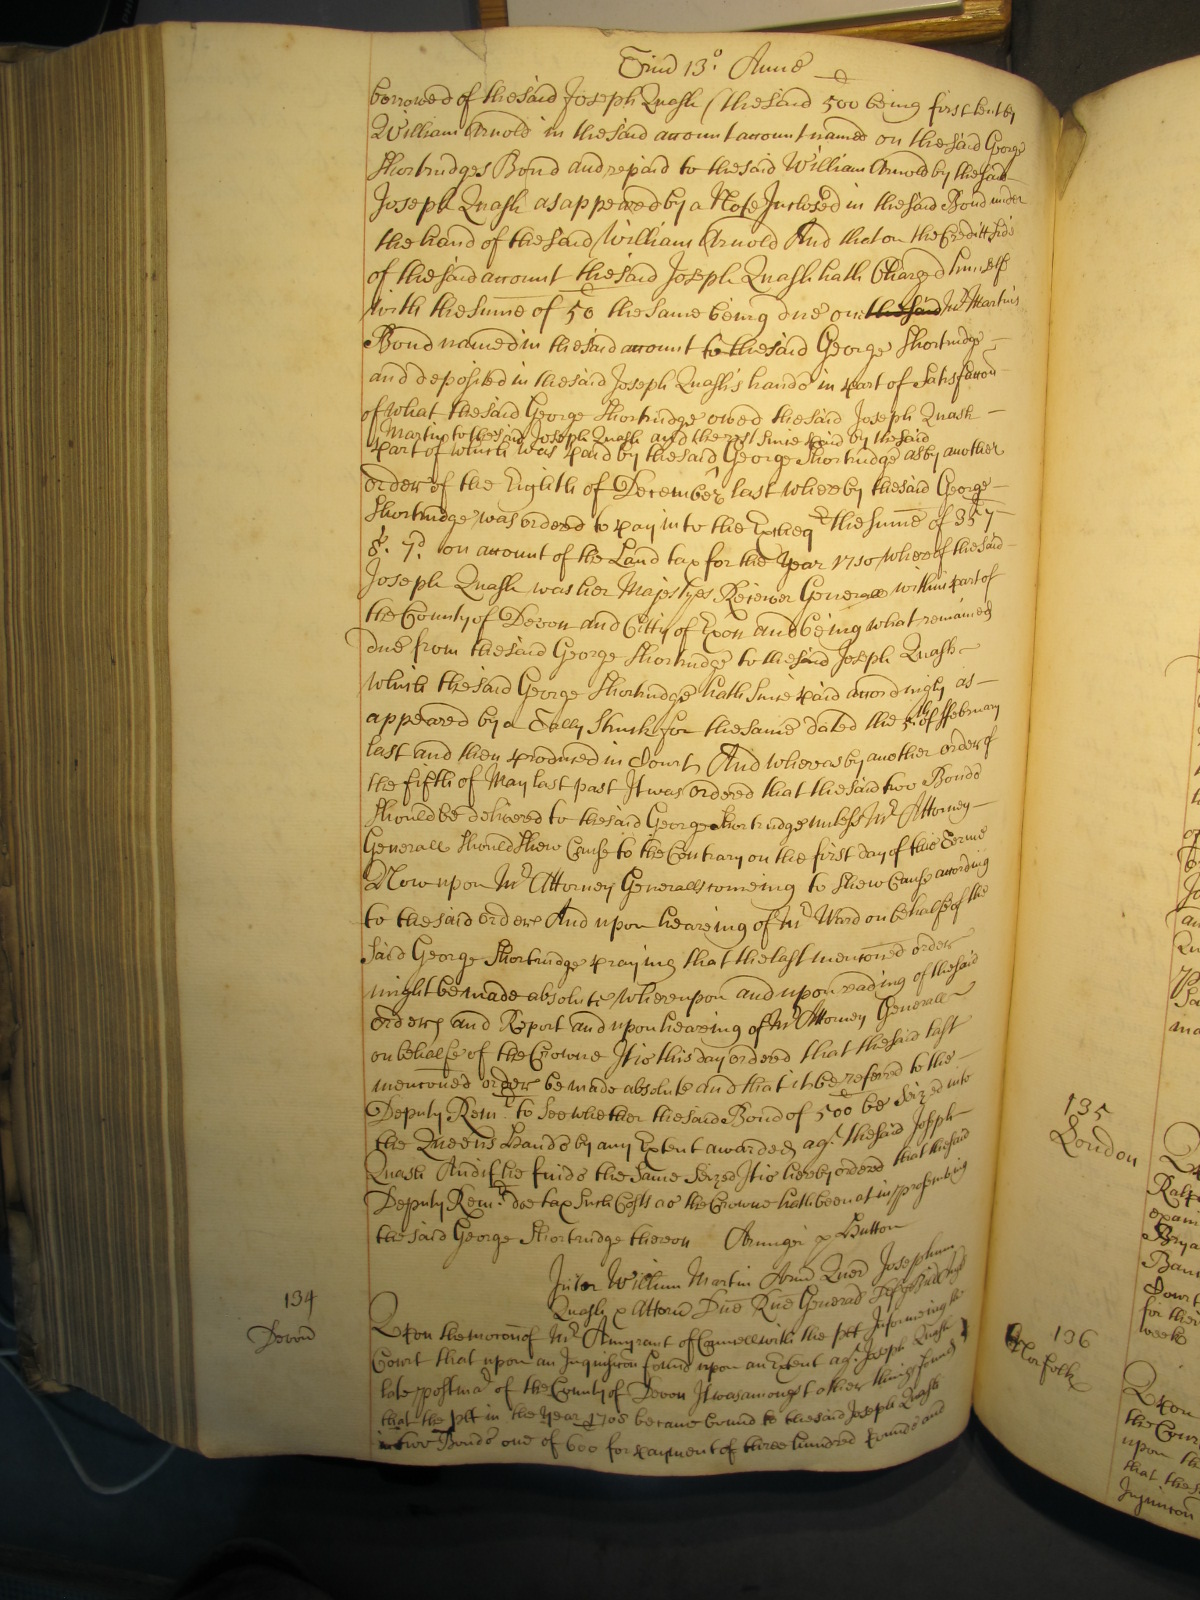 Trin 13º Anne
borrowed of the said Joseph Quash (the said 500 being first lent by
William Arnold in the said account account named on the said George
Shortridges Bond and repaid to the said William Arnold by the said
Joseph Quash as appeared by a Note Inclosed in the said Bond under
the hand of the said William Arnold And that on the Creditt side
of the said account the said Joseph Quash hath Charged himselfe
with the summe of 50 the same being due on the said Mr Martins
Bond named in the said account to the said George Shortridge
and deposited in the said Joseph Quash's hands in part of Satisfaccon
of what the said George Shortridge owed the said Joseph Quash
Martin to the said Joseph Quash and the rest since paid by the said
part of which was paid by the said George Shortridge as by another
order of the Eighth of December last whereby the said George
Shortridge was ordered to pay into the Excheqr the summe of 357
8s. 7d. on account of the Land tax for the Year 1710 whereof the said
Joseph Quash was her Majestyes Receiver Generall within part of
the County of Devon and Citty of Exon and being what remained
due from the said George Shortridge to the said Joseph Quash
which the said George Shortridge hath since paid accordingly as
appeared by a Tally Struck for the same dated the 5th of ffebruary
last and then produced in Court And whereas by another order of
the fifth of May last past It was ordered that the said two Bonds
should be delivered to the said George Shortridge unless Mr Attorney
Generall should shew Cause to the Contrary on the first day of this Terme
Now upon Mr Attorney Generalls comeing to shew Cause according
to the said order And upon heareing of Mr Ward on behalfe of the
said George Shortridge praying that the last menconed order
might be made absolute Whereupon and upon reading of the said
orders and Report and upon heareing of Mr Attorney Generall
on behalfe of the Crowne It is this day ordered that the said last
menconed order be made absolute and that it be referred to the
Deputy Remr to see whether the said Bond of 500 be Seized into
the Queens Hands by any Extent awarded agt the said Joseph
Quash And if he finds the same Seized It is hereby ordered that the said
Deputy Remr doe tax such Costs as the Crowne hath been at in prosecuting
the said George Shortridge thereon Arunger p Hutton
Inter William Martin Quer Josephum
Quash
134
Devon
Upon the mocon of Mr of Councell with the plt Informeing the
Court that upon an Inquisicon found upon an Extent agt Joseph Quash
late postmar of the County of Devon It was amongst other things found
that the plt in the Year 1708 became bound to the said Joseph Quash
in two Bonds one of 600 for payment of three hundred pounds and
135
London
136
Norfolk
Upon
the Court
upon the
that the